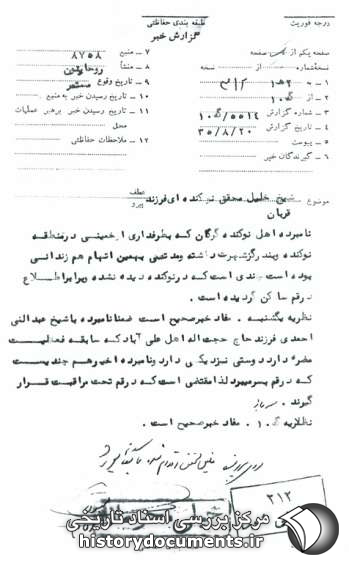 درجه فوریت
طبقه بندی حفاظتی
گزارش خبر
صفحه یکم از صفحه
نسخه شماره از نسخه
۱ - به
۲ - از گ۱۰
۳ - شماره گزارش ۵۵۱۴/گ۱۰
۴ - تاریخ گزارش ۳۵/۸/۲۰
۵ - پیوست
۶ - گیرندگان خبر
۷ - منبع ۸۷۵۸
۸ - منشأ
۹ - تاریخ وقوع
۱۰ - تاریخ رسیدن خبر به منبع
۱۱ - تاریخ رسیدن خبر برهبر عملیات
محل
۱۲ - ملاحظات حفاظتی
موضوع شیخ خلیل محقق نوکنده ای فرزند
قربان
عطف
پیرو
نامبرده اهل نوکنده گرگان که بطرفداری از خمینی در منطقه
نوکنده وبندرگزشهرت داشته ومدتی بهمین اتهام هم زندانی
بوده است چندی است که درنوکنده دیده نشده وبرابراطلاع
درقم ساکن گردیده است .
نظریه یکشنبه . مفاد خبرصحیح است ضمنا نامبرده باشیخ عبدالنبی
احمدی فرزند حاج حجت اله اهل علی آباد که سابقه فعالیت
مضره دارد دوستی نزدیکی دارد ونامبرده اخیرهم چندیست
که درقم بسرمیبرد لذا مقتضی است که درقم تحت مراقبت قرار
گیرند .
نظریه گ۱۰ . مفاد خبرصحیح است .
۳۱۲
مرکز بررسی اسناد تاریخی
historydocuments.ir